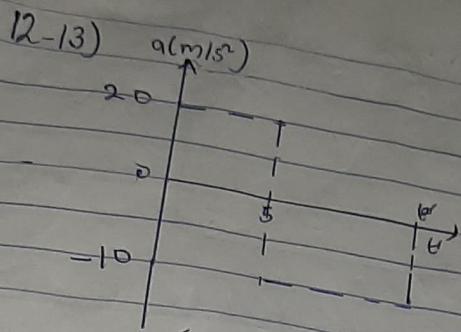 12-13) a(m/s²)
20
0
5
t
-10